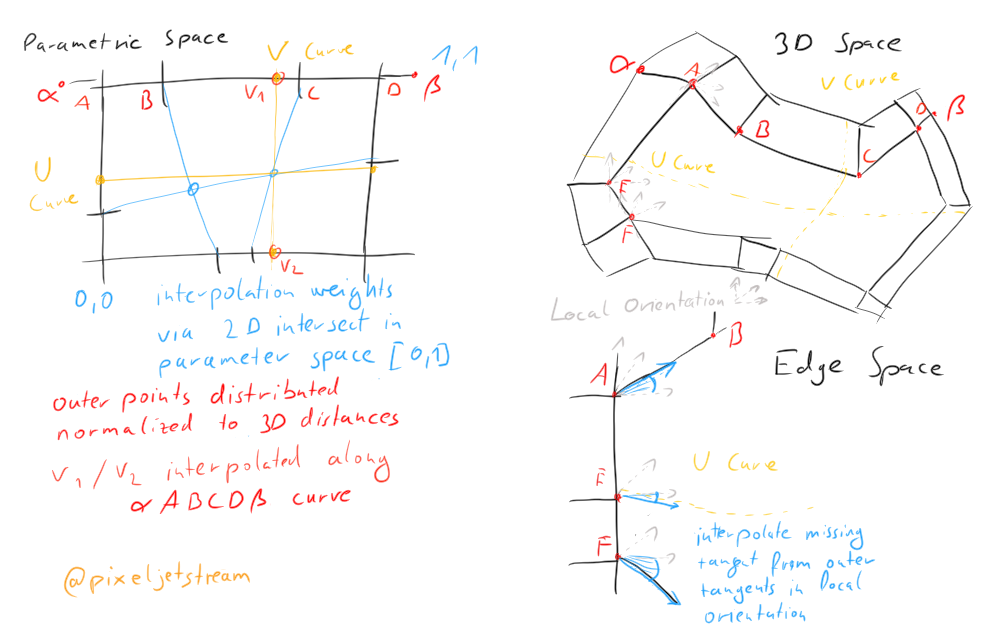 Parametric Space
V Curve
1,1
α
A
B
V1
C
D
β
U
Curve
V2
0,0
interpolation weights
via 2D intersect in
parameter space [0,1]
outer points distributed
normalized to 3D distances
V1/V2 interpolated along
α A B C D β curve
@pixeljetstream
3D Space
α
A
V Curve
B
D
β
C
U Curve
E
F
Local Orientation
B
Edge Space
A
U Curve
E
F
interpolate missing
tanget from outer
tangents in local
orientation